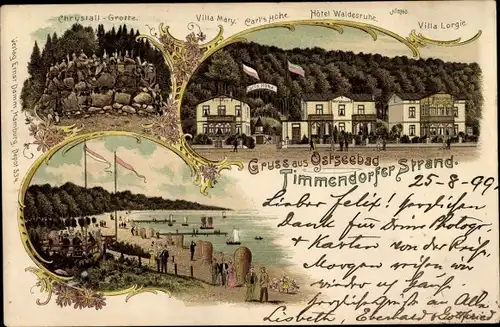 Chrystall-Grotte.
Villa Mary.
Carl's Höhe.
Hôtel Waldesruhe.
Villa Lorgie.
Gruss aus Ostseebad
Timmendorfer Strand.
25-8-99
Lieber Felix! Herzlichen
Dank für Deine Photogr.
+ Karten von der Reise.
Morgen reisen wir
wieder
herzliche Grüße an Alle
Lisbeth, Eberhard & Gottfried